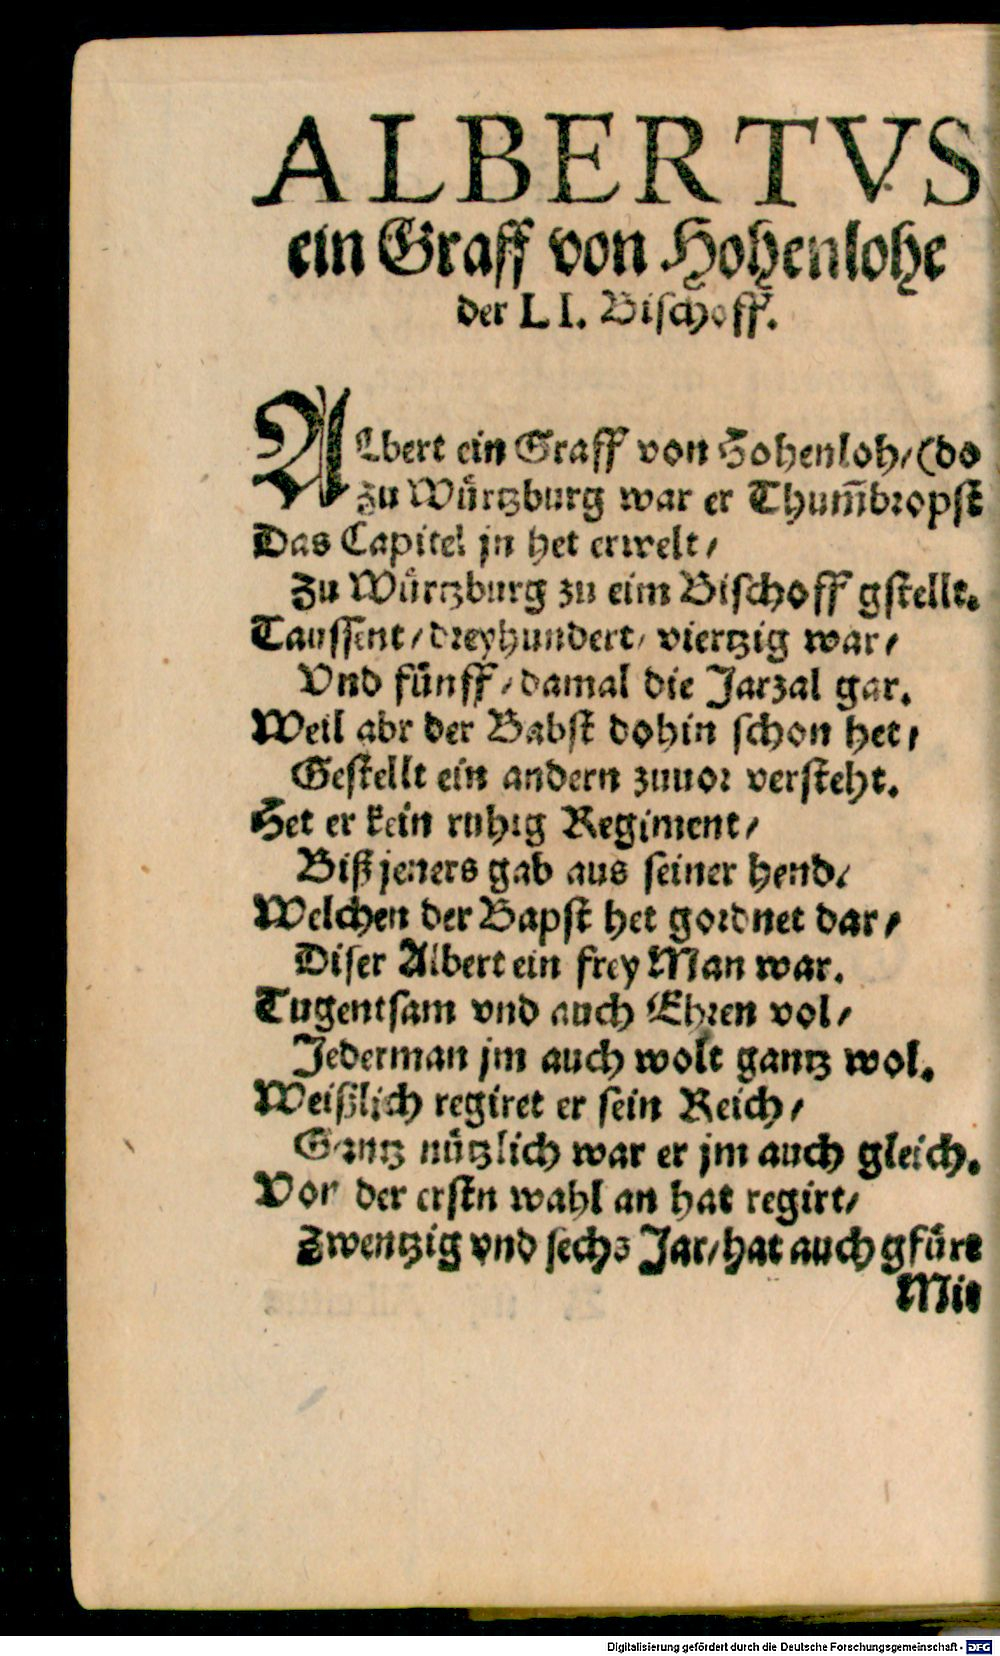 ALBERTVS
ein Graff von Hohenlohe
der LI. Bischoff.
ALbert ein Graff von Hohenloh/(do
zu Würtzburg war er Thum̃bropst
Das Capitel jn het erwelt/
Zu Würtzburg zu eim Bischoff gstellt.
Taussent/dreyhundert/viertzig war/
Vnd fünff/damal die Jarzal gar.
Weil abr der Babst dohin schon het/
Gestellt ein andern zuuor versteht.
Het er kein ruhig Regiment/
Biß jeners gab aus seiner hend/
Welchen der Bapst het gordnet dar/
Diser Albert ein frey Man war.
Tugentsam vnd auch Ehren vol/
Jederman jm auch wolt gantz wol.
Weißlich regiret er sein Reich/
Gantz nützlich war er jm auch gleich.
Von der erstn wahl an hat regirt/
Zwentzig vnd sechs Jar/hat auch gfürt
Mit
Digitalisierung gefördert durch die Deutsche Forschungsgemeinschaft - DFG